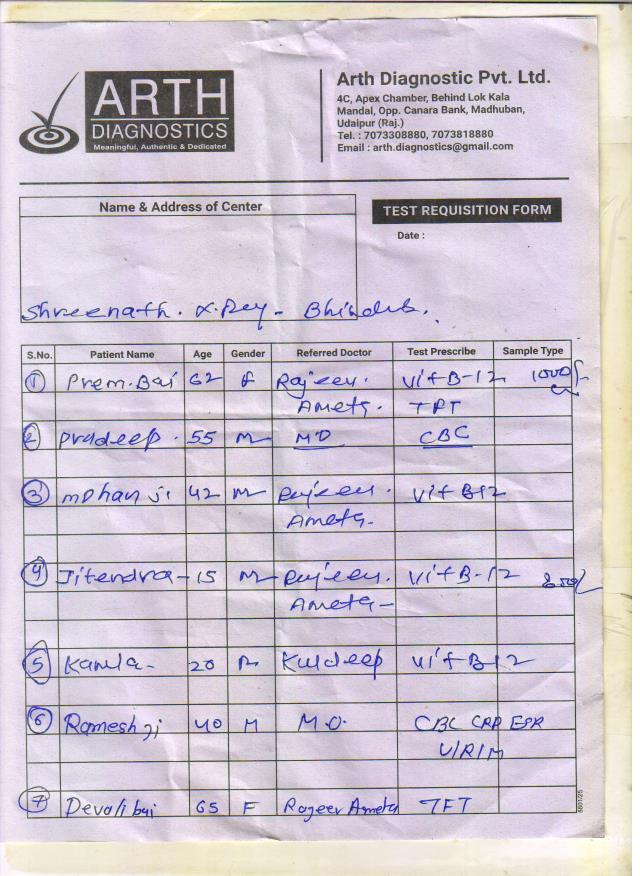 ARTH
DIAGNOSTICS
Meaningful, Authentic & Dedicated
Arth Diagnostic Pvt. Ltd.
4C, Apex Chamber, Behind Lok Kala
Mandal, Opp. Canara Bank, Madhuban,
Udaipur (Raj.)
Tel. : 7073308880, 7073818880
Email : arth.diagnostics@gmail.com
Name & Address of Center
TEST REQUISITION FORM
Date :
Shreenath. X.Rey -
S.No. Patient Name Age Gender Referred Doctor Test Prescribe Sample Type
1 Prem.Bai 62 F Rajeev. Vit B-12 1000/-
Ameta. TPT
2 Pradeep. 55 M MD CBC
3 Mohan ji 42 M Rajeev. Vit B12
Ameta.
4 Jitendra - 15 M Rajeev. Vit B-12 800/-
Ameta -
5 Kamla - 20 Kuldeep Vit B12
6 Ramesh ji 40 M M.O. CBC CRP ESR
U/R/M
7 Devali bai 65 F Rajeev Ameta TFT